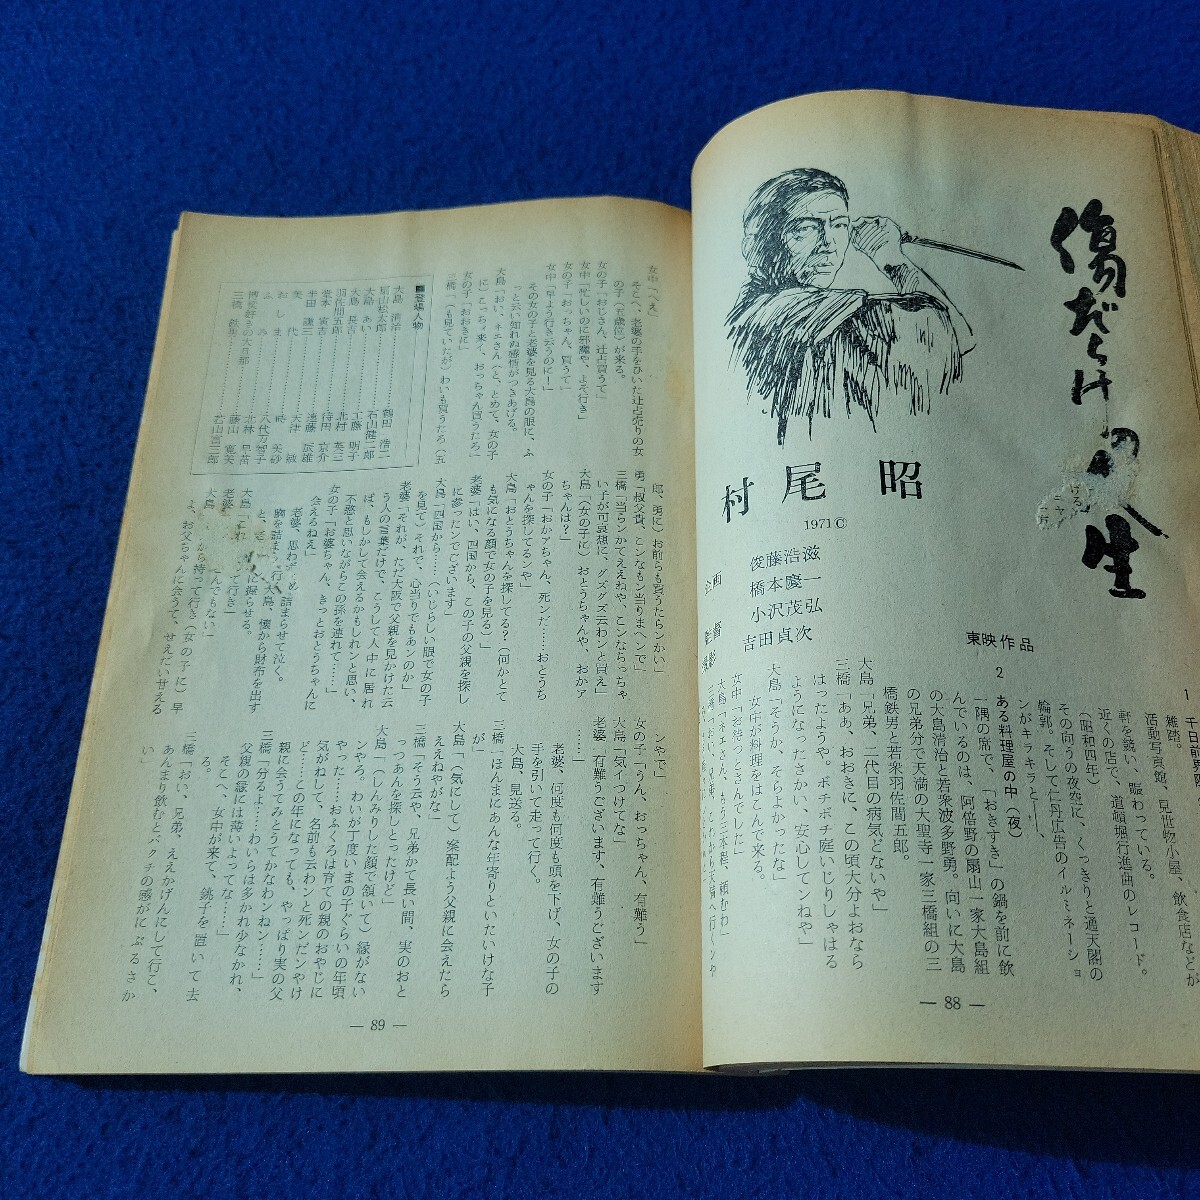 傷だらけの人生
東映作品
村尾 昭
1971©
企画
俊藤浩滋
橋本慶一
小沢茂弘
吉田貞次
監督
撮影
1 千日前界隈
雑踏。
活動写真館、見世物小屋、飲食店などが
軒を競い、賑わっている。
近くの店で、道頓堀行進曲のレコード。
(昭和四年)
その向うの夜空に、くっきりと通天閣の
輪郭。そして仁丹広告のイルミネーショ
ンがキラキラと――、
2 ある料理屋の中(夜)
一隅の席で、「おきすき」の鍋を前に飲
んでいるのは、阿倍野の扇山一家大島組
の大島清治と若衆波多野勇。向いに大島
の兄弟分で天満の大聖寺一家三橋組の三
橋鉄男と若衆羽佐間五郎。
大島「兄弟、二代目の病気どないや」
三橋「ああ、おおきに、この頃大分よおなら
はったようや。ボチボチ庭いじりしゃはる
ようになったさかい、安心してンねや」
大島「そうか、そらよかったな」
女中が料理をはこんで来る。
女中「お待っとさんでした」
大島「ネエさん、もう三本程、頼むわ」
― 88 ―
女中「へえ」
そこへ、老婆の手をひいた辻占売りの女
の子(五歳位)が来る。
女の子「おじさん、辻占買うて」
女中「忙しいのに邪魔や、よそ行き」
女の子「おっちゃん、買うて」
女中「早よう行き云うのに!」
その女の子と老婆を見る大島の眼に、ふ
っと云い知れぬ感情がつきあげる。
大島「おい、ネエさん(と、とめて、女の子
に)こっちィ来て、おっちゃん買うたろ」
女の子「おおきに」
三橋「(も見ていたが)わいも買うたろ(五
■登場人物
大島 清治………鶴田 浩二
扇山松太郎………石山健二郎
大島 あい………工藤 明子
大島 長吉………北村 英三
羽佐間五郎………待田 京介
半田 謙三………遠藤 辰雄
美 代………天津 敏
おしま………
ふみ………八代万智子
博奕好きの大旦那………北林 早苗
藤山 寛美
三橋 鉄男………若山富三郎
郎、勇に)お前らも買うたらンかい」
勇「叔父貴、こンなもン当りまヘンで」
三橋「当らンかてええねや、こンなちっちゃ
い子が可哀想に、グズグズ云わンと買え」
大島「(女の子に)おとうちゃんや、おかア
ちゃんは?」
女の子「おかアちゃん、死ンだ……おとうち
ゃんを探してるンや」
大島「おとうちゃんを探してる?(何かとて
も気になる顔で女の子を見る)」
老婆「はい、四国から、この子の父親を探し
に参ったンでございます」
大島「四国から……(いじらしい眼で女の子
を見て)それで、心当りでもあンのか」
老婆「それが、ただ大阪で父親を見かけた云
う人の言葉だけで、こうして人中に居れ
ば、もしかして会えるかもしれンと思い、
不愍と思いながらこの孫を連れて……」
女の子「お婆ちゃん、きっとおとうちゃんに
会えるねえ」
老婆、思わず
胸を詰ませる
詰まらせて泣く。
大島、懐から財布を出す
に握らせる。
大島「これ
て行き」
老婆「
大島「
んでもない」
から持って行き(女の子に)早
よ、お父ちゃんに会うて、せえだい甘える
ンやで」
女の子「うん、おっちゃん、有難う」
大島「気イつけてな」
老婆「有難うございます、有難うございます
……」
老婆、何度も何度も頭を下げ、女の子の
手を引いて走って行く。
大島、見送る。
三橋「ほんまにあんな年寄りといたいけな子
が」
大島「(気にして)案配よう父親に会えたら
ええねやがな」
三橋「そう云や、兄弟かて長い間、実のおと
つぁんを探しとったけど」
大島「(しんみりした顔で頷いて)縁がない
ンやろ、わいが丁度いまの子ぐらいの年頃
やった……おふくろは育ての親のおやじに
気がねして、名前も云わンと死ンだンやけ
ど……この年になっても、やっぱり実の父
親に会うてみとうてかなわンねン……」
三橋「分るよ……わいらは多かれ少なかれ、
父親の縁には薄いよってな……」
そこへ、女中が来て、銚子を置いて去
る。
三橋「おい、兄弟、ええかげんにして行こ、
あんまり飲むとバクチの感がにぶるさか
い」
― 89 ―